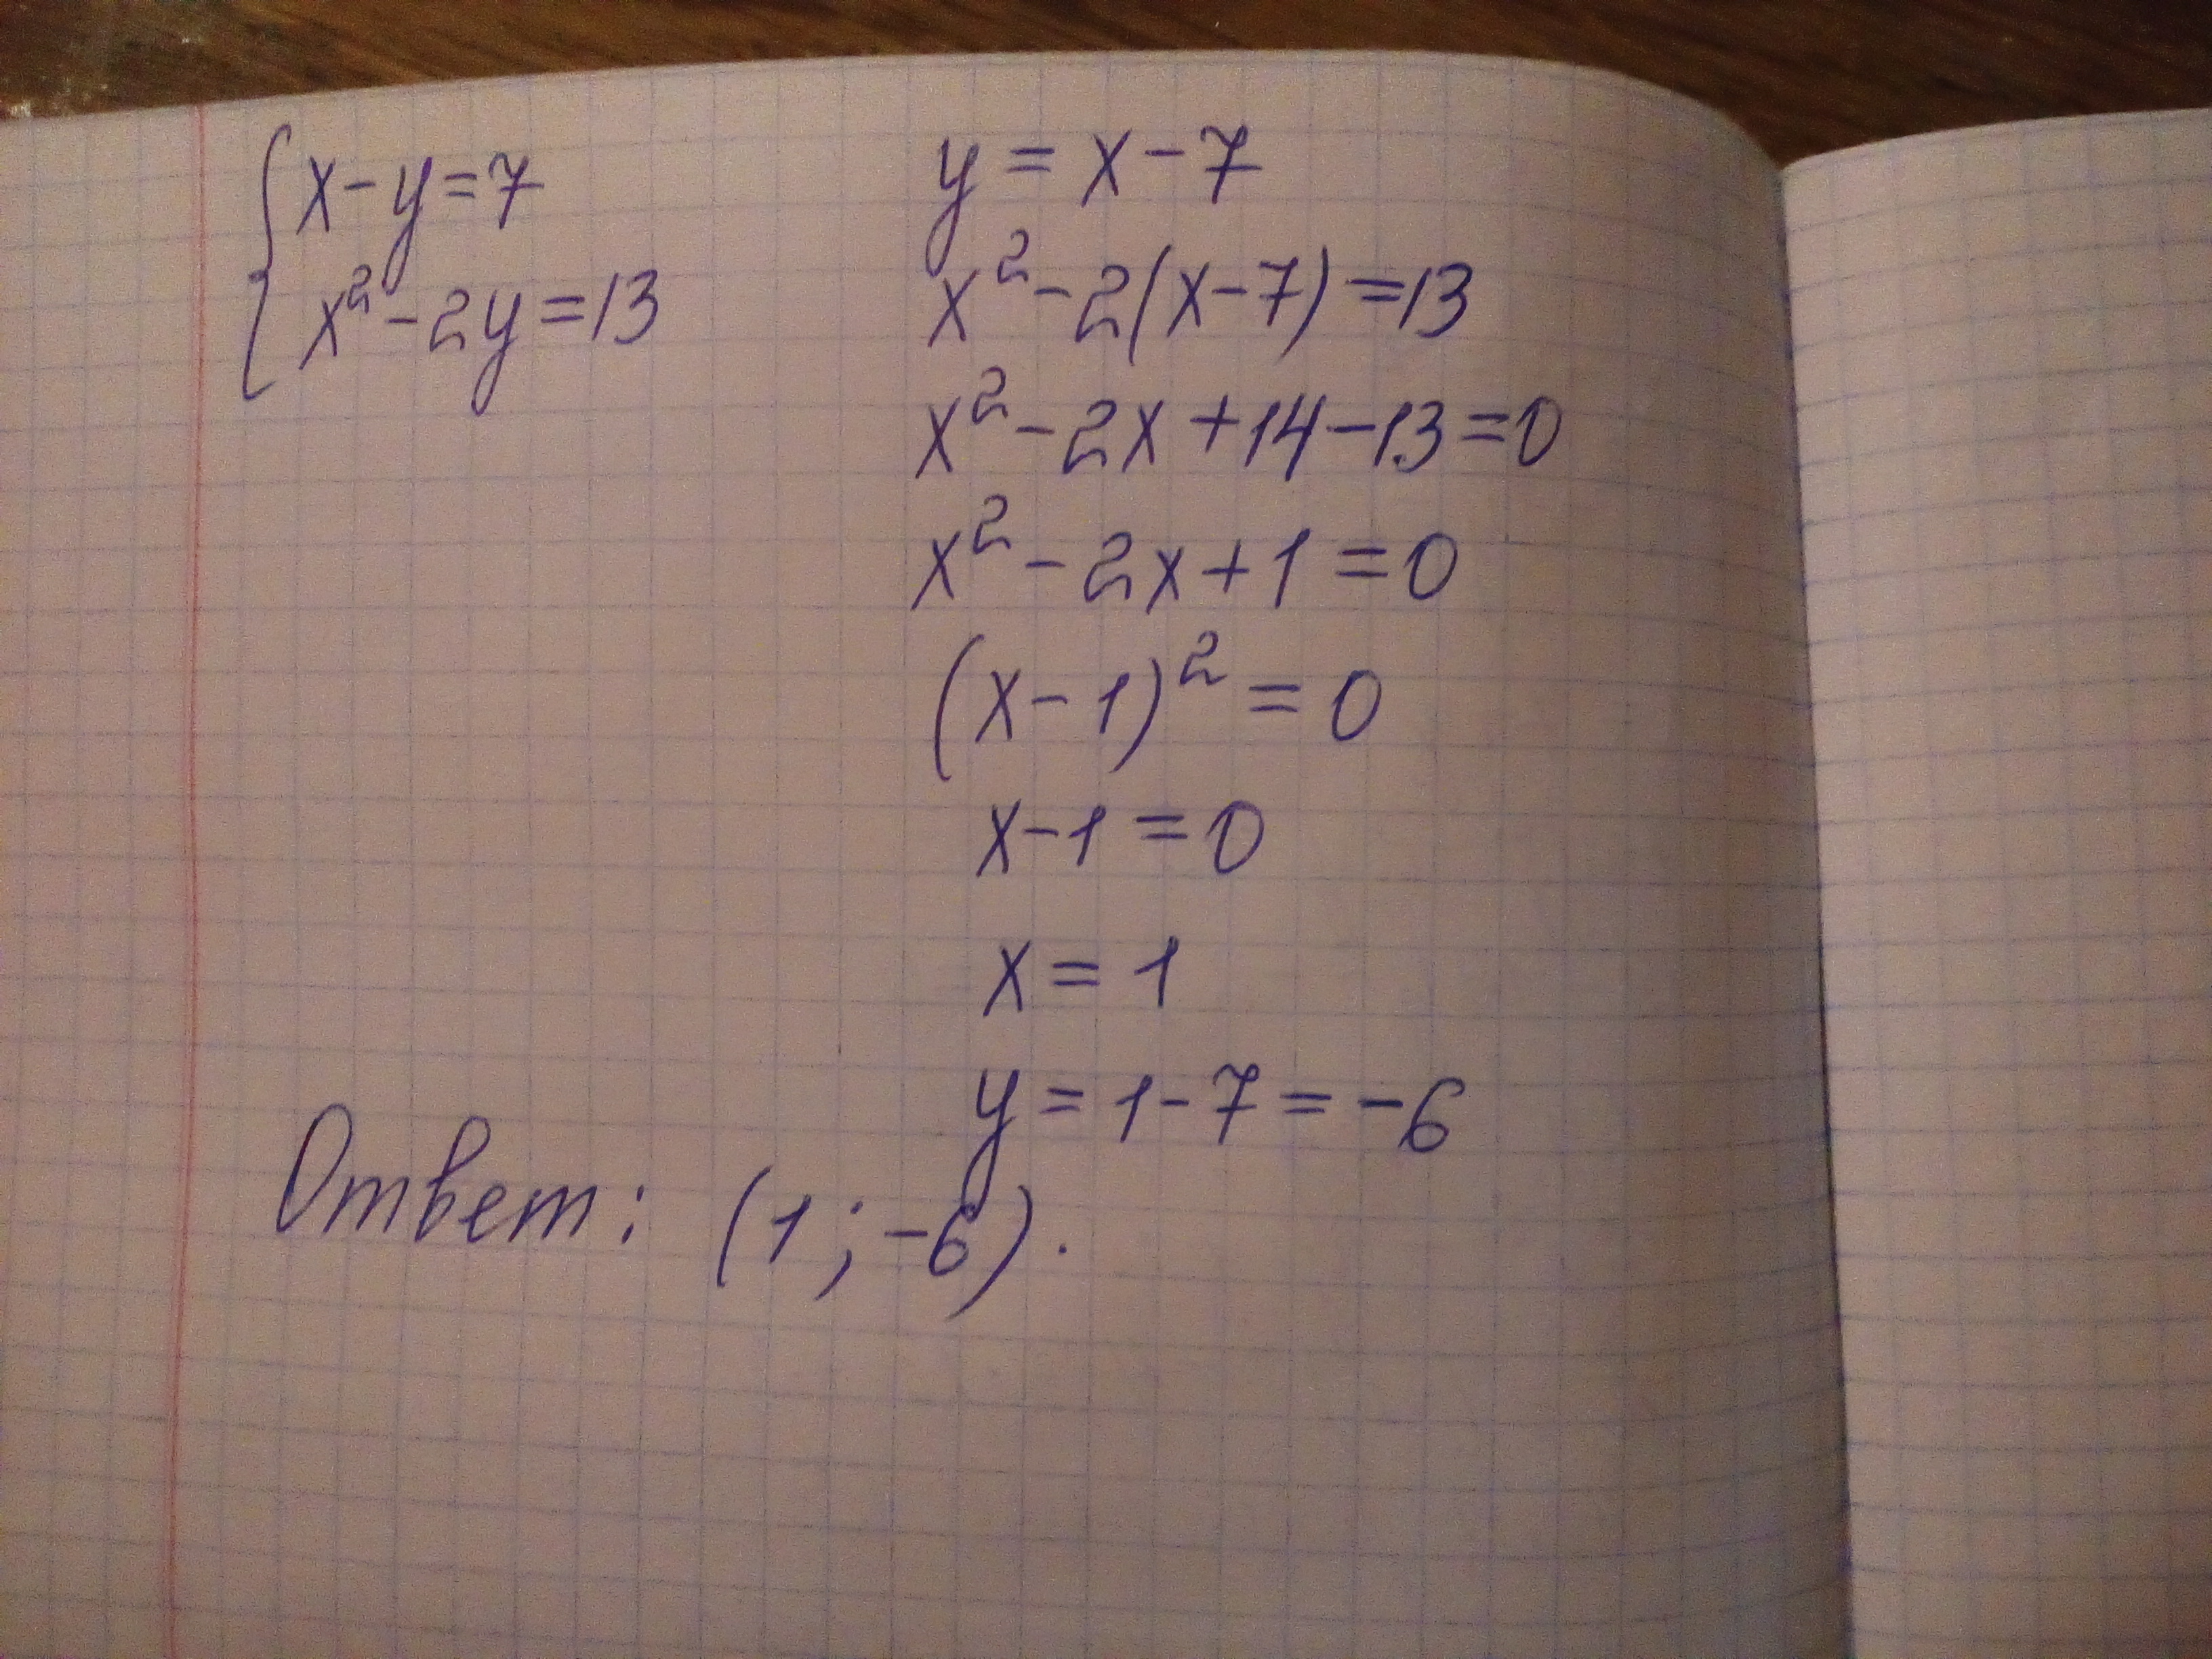 { x - y = 7
x² - 2y = 13
y = x - 7
x² - 2(x - 7) = 13
x² - 2x + 14 - 13 = 0
x² - 2x + 1 = 0
(x - 1)² = 0
x - 1 = 0
x = 1
y = 1 - 7 = -6
Ответ: (1; -6).